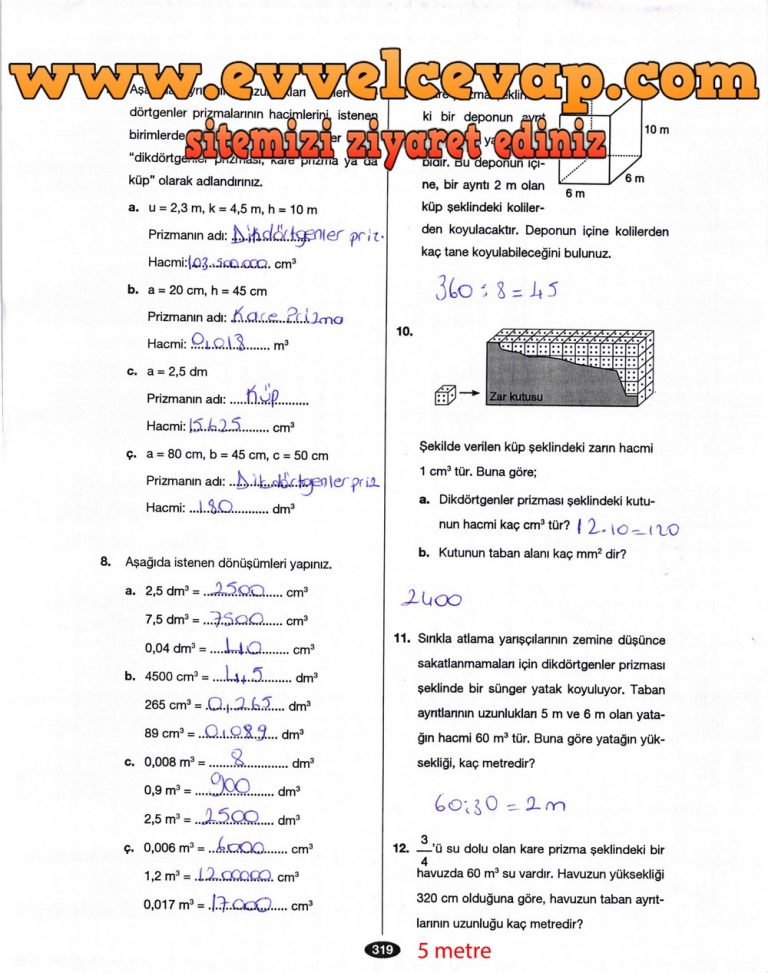 www.evvelcevap.com
sitemizi ziyaret ediniz
dörtgenler prizmalarının hacimlerini, istenen
birimlerde
"dikdörtgenler prizması, kare prizma ya da
küp" olarak adlandırınız.
a. u = 2,3 m, k = 4,5 m, h = 10 m
Prizmanın adı: Dikdörtgenler priz.
Hacmi: 103.500.000 cm³
b. a = 20 cm, h = 45 cm
Prizmanın adı: Kare Prizma
Hacmi: 0,018 m³
c. a = 2,5 dm
Prizmanın adı: Küp
Hacmi: 15.625 cm³
ç. a = 80 cm, b = 45 cm, c = 50 cm
Prizmanın adı: Dikdörtgenler priz
Hacmi: 180 dm³
8. Aşağıda istenen dönüşümleri yapınız.
a. 2,5 dm³ = 2500 cm³
7,5 dm³ = 7500 cm³
0,04 dm³ = 40 cm³
b. 4500 cm³ = 4,5 dm³
265 cm³ = 0,265 dm³
89 cm³ = 0,089 dm³
c. 0,008 m³ = 8 dm³
0,9 m³ = 900 dm³
2,5 m³ = 2500 dm³
ç. 0,006 m³ = 6000 cm³
1,2 m³ = 1200000 cm³
0,017 m³ = 17.000 cm³
ki bir deponun ayrıt
bidir. Bu deponun içi-
ne, bir ayrıtı 2 m olan
küp şeklindeki koliler-
den koyulacaktır. Deponun içine kolilerden
kaç tane koyulabileceğini bulunuz.
10 m
6 m
6 m
360 ÷ 8 = 45
10.
Zar kutusu
Şekilde verilen küp şeklindeki zarın hacmi
1 cm³ tür. Buna göre;
a. Dikdörtgenler prizması şeklindeki kutu-
nun hacmi kaç cm³ tür? 12.10=120
b. Kutunun taban alanı kaç mm² dir?
2400
11. Sırıkla atlama yarışçılarının zemine düşünce
sakatlanmamaları için dikdörtgenler prizması
şeklinde bir sünger yatak koyuluyor. Taban
ayrıtlarının uzunlukları 5 m ve 6 m olan yata-
ğın hacmi 60 m³ tür. Buna göre yatağın yük-
sekliği, kaç metredir?
60:30 = 2m
12. 3/4 'ü su dolu olan kare prizma şeklindeki bir
havuzda 60 m³ su vardır. Havuzun yüksekliği
320 cm olduğuna göre, havuzun taban ayrıt-
larının uzunluğu kaç metredir?
319
5 metre